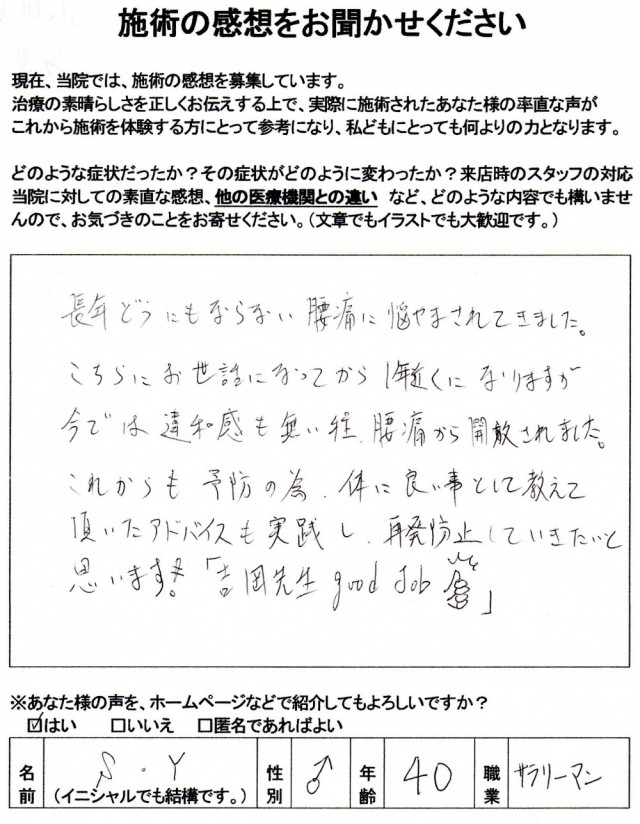 施術の感想をお聞かせください
現在、当院では、施術の感想を募集しています。
治療の素晴らしさを正しくお伝えする上で、実際に施術されたあなた様の率直な声が
これから施術を体験する方にとって参考になり、私どもにとっても何よりの力となります。
どのような症状だったか？その症状がどのように変わったか？来店時のスタッフの対応
当院に対しての素直な感想、他の医療機関との違い など、どのような内容でも構いませ
んので、お気づきのことをお寄せください。（文章でもイラストでも大歓迎です。）
長年どうにもならない腰痛に悩やまされてきました。
こちらにお世話になってから1年近くになりますが
今では違和感も無い程、腰痛から開放されました。
これからも予防の為、体に良い事として教えて
頂いたアドバイスも実践し、再発防止していきたいと
思います。「吉岡先生 good Job」
※あなた様の声を、ホームページなどで紹介してもよろしいですか？
☑はい □いいえ □匿名であればよい
名前 S・Y （イニシャルでも結構です。） 性別 ♂ 年齢 40 職業 サラリーマン